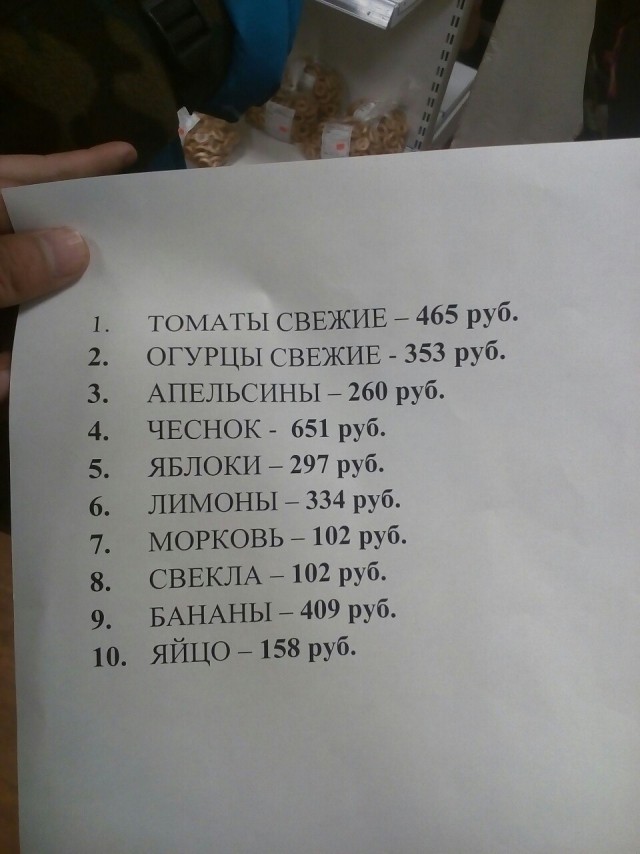 1. ТОМАТЫ СВЕЖИЕ – 465 руб.
2. ОГУРЦЫ СВЕЖИЕ - 353 руб.
3. АПЕЛЬСИНЫ – 260 руб.
4. ЧЕСНОК - 651 руб.
5. ЯБЛОКИ – 297 руб.
6. ЛИМОНЫ – 334 руб.
7. МОРКОВЬ – 102 руб.
8. СВЕКЛА – 102 руб.
9. БАНАНЫ – 409 руб.
10. ЯЙЦО – 158 руб.